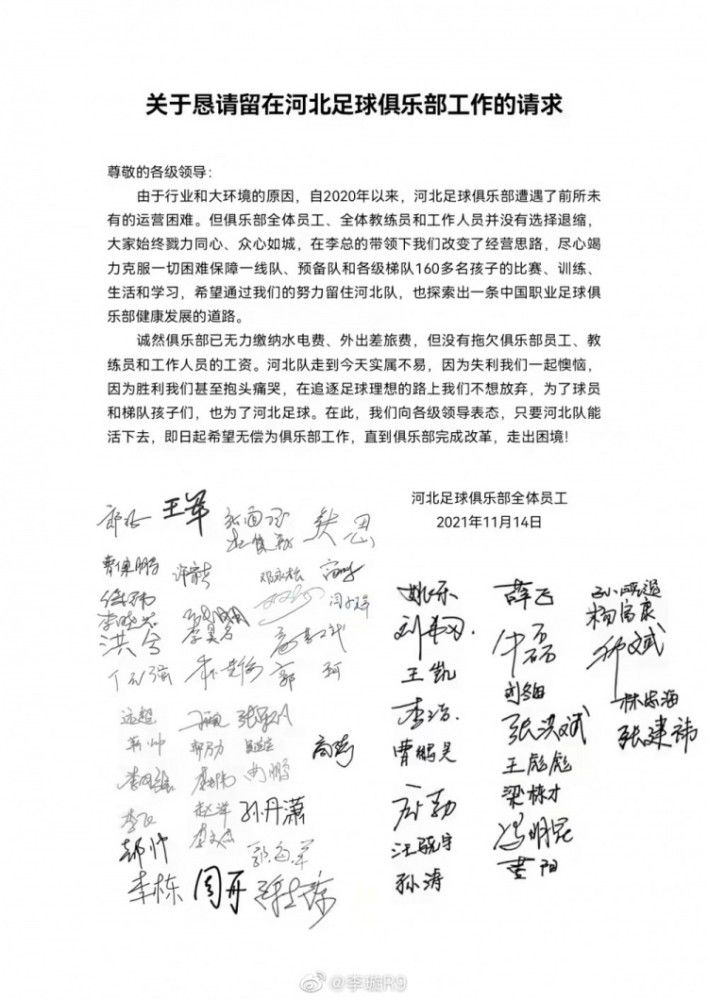 关于恳请留在河北足球俱乐部工作的请求
尊敬的各级领导：
由于行业和大环境的原因，自2020年以来，河北足球俱乐部遭遇了前所未
有的运营困难。但俱乐部全体员工、全体教练员和工作人员并没有选择退缩，
大家始终戮力同心、众心如城，在李总的带领下我们改变了经营思路，尽心竭
力克服一切困难保障一线队、预备队和各级梯队160多名孩子的比赛、训练、
生活和学习，希望通过我们的努力留住河北队，也探索出一条中国职业足球俱
乐部健康发展的道路。
诚然俱乐部已无力缴纳水电费、外出差旅费，但没有拖欠俱乐部员工、教
练员和工作人员的工资。河北队走到今天实属不易，因为失利我们一起懊恼，
因为胜利我们甚至抱头痛哭，在追逐足球理想的路上我们不想放弃，为了球员
和梯队孩子们，也为了河北足球。在此，我们向各级领导表态，只要河北队能
活下去，即日起希望无偿为俱乐部工作，直到俱乐部完成改革，走出困境！
河北足球俱乐部全体员工
2021年11月14日
王军
曹保鹏
洪兮
郭珂
远超
高奇
赵洋 孙丹潇
李栋 周开
姚乐 薛飞
杨富康
王凯
李浩
刘红
张洪斌
林志海
张建祎
曹鹏昊
王彪彪
梁栋才
冯明昆
汪骁宇
黄阳
孙涛
@李璇R9